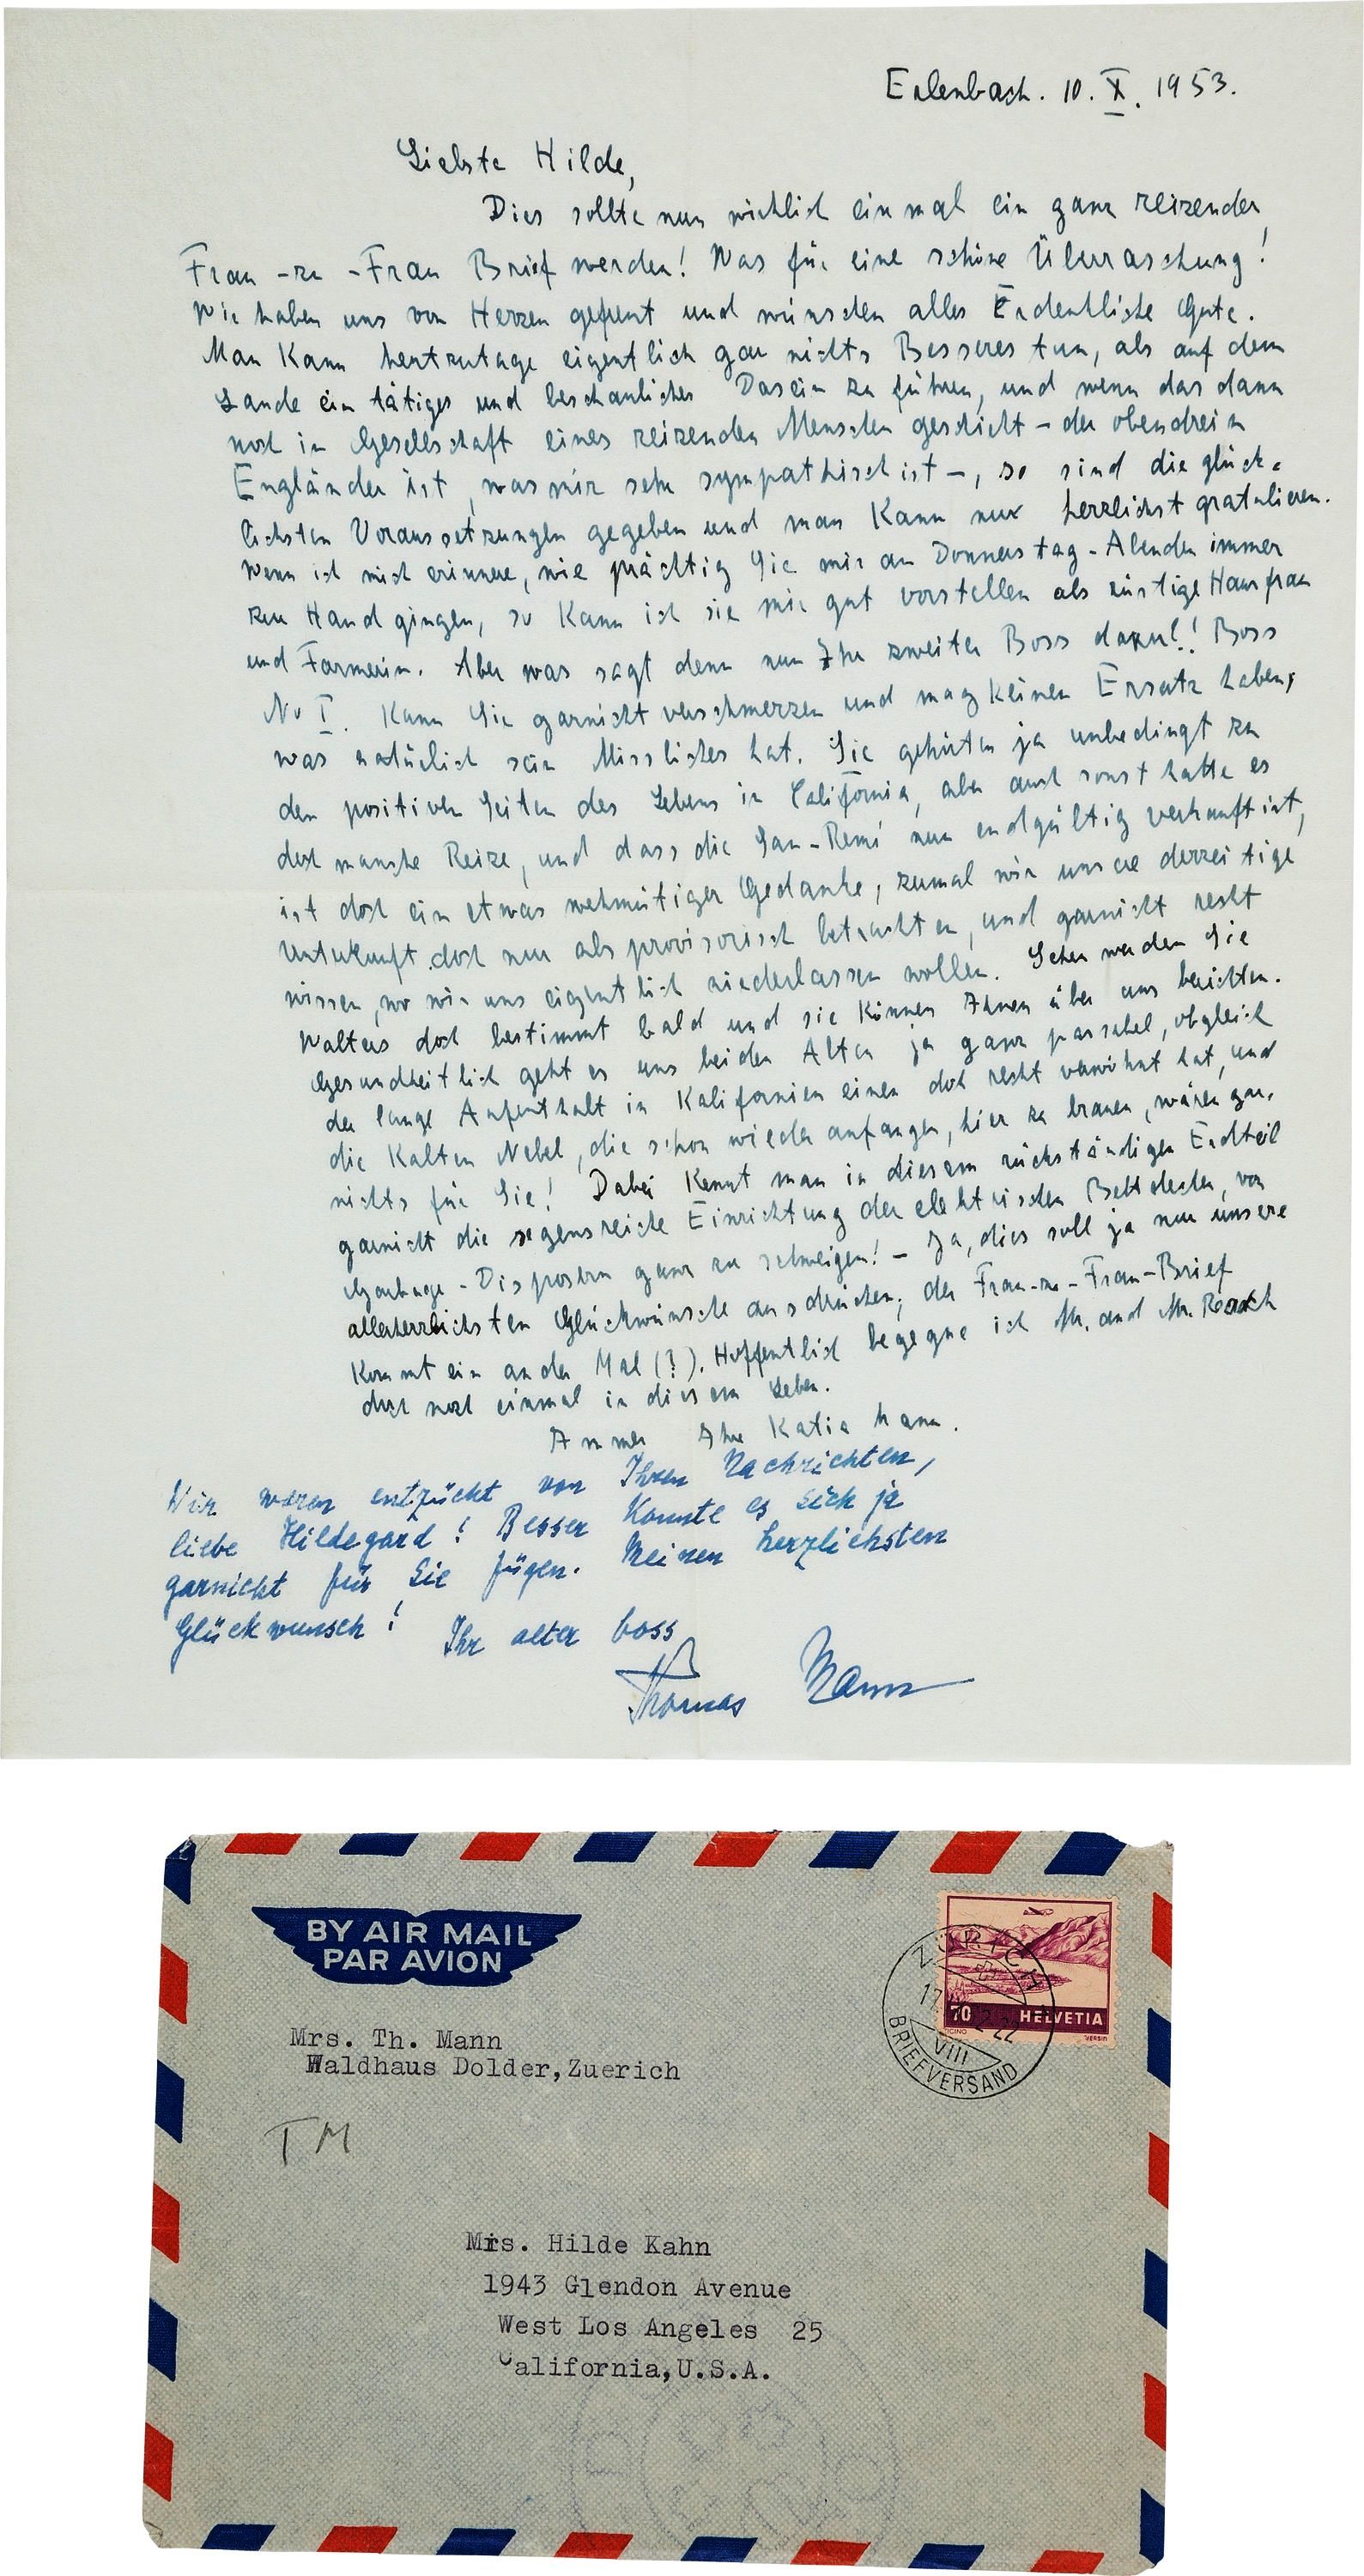 Erlenbach. 10. X. 1953.
Liebste Hilde,
Dies sollte nun wirklich einmal ein ganz reizender,
Frau-zu-Frau Brief werden! Was für eine schöne Überraschung!
Wir haben uns von Herzen gefreut und wünschen alles Erdenkliche Gute.
Man kann heutzutage eigentlich gar nichts Besseres tun, als auf dem
Lande ein tätiges und beschauliches Dasein zu führen, und wenn das dann
noch in Gesellschaft eines reizenden Menschen geschieht – der obendrein
Engländer ist, was mir sehr sympathisch ist –, so sind die glück-
lichsten Voraussetzungen gegeben und man kann nur herzlichst gratulieren.
Wenn ich mich erinnere, wie prächtig Sie mir an Donnerstag-Abenden immer
zur Hand gingen, so kann ich sie mir gut vorstellen als rüstige Hausfrau
und Farmerin. Aber was sagt denn nun Ihr zweiter Boss dazu?! Boss
No I. kann Sie garnicht verschmerzen und mag keinen Ersatz haben,
was natürlich sein Missliches hat. Sie gehörten ja unbedingt zu
den positiven Seiten des Lebens in California, aber auch sonst hatte es
doch manche Reize, und dass die San-Remi nun endgültig verkauft ist,
ist doch ein etwas wehmütiger Gedanke, zumal wir unsere derzeitige
Unterkunft doch nur als provisorisch betrachten, und garnicht recht
wissen, wo wir uns eigentlich niederlassen wollen. Sehen werden Sie
Walters doch bestimmt bald und sie können Ihnen über uns berichten.
Gesundheitlich geht es uns beiden Alten ja ganz passabel, obgleich
der lange Aufenthalt in Kalifornien einen doch recht verwöhnt hat, und
die kalten Nebel, die schon wieder anfangen, hier zu brauen, wären gar-
nichts für Sie! Dabei kennt man in diesem rückständigen Erdteil
garnicht die segensreiche Einrichtung der elektrischen Bettdecken, von
Garbage-Disposern ganz zu schweigen! – Ja, dies soll ja nur unsere
allerherzlichsten Glückwünsche ausdrücken; der Frau-zu-Frau-Brief
kommt ein ander Mal (?). Hoffentlich begegne ich Mr. and Mr. Reach
doch noch einmal in diesem Leben.
Immer Ihre Katia Mann.
Wir waren entzückt von Ihren Nachrichten,
liebe Hildegard! Besser konnte es sich ja
garnicht für Sie fügen. Meinen herzlichsten
Glückwunsch! Ihr alter boss
Thomas Mann
BY AIR MAIL
PAR AVION
ZÜRICH
17.
22
VIII
BRIEFVERSAND
70 HELVETIA
Mrs. Th. Mann
Waldhaus Dolder,Zuerich
TM
Mrs. Hilde Kahn
1943 Glendon Avenue
West Los Angeles 25
California,U.S.A.